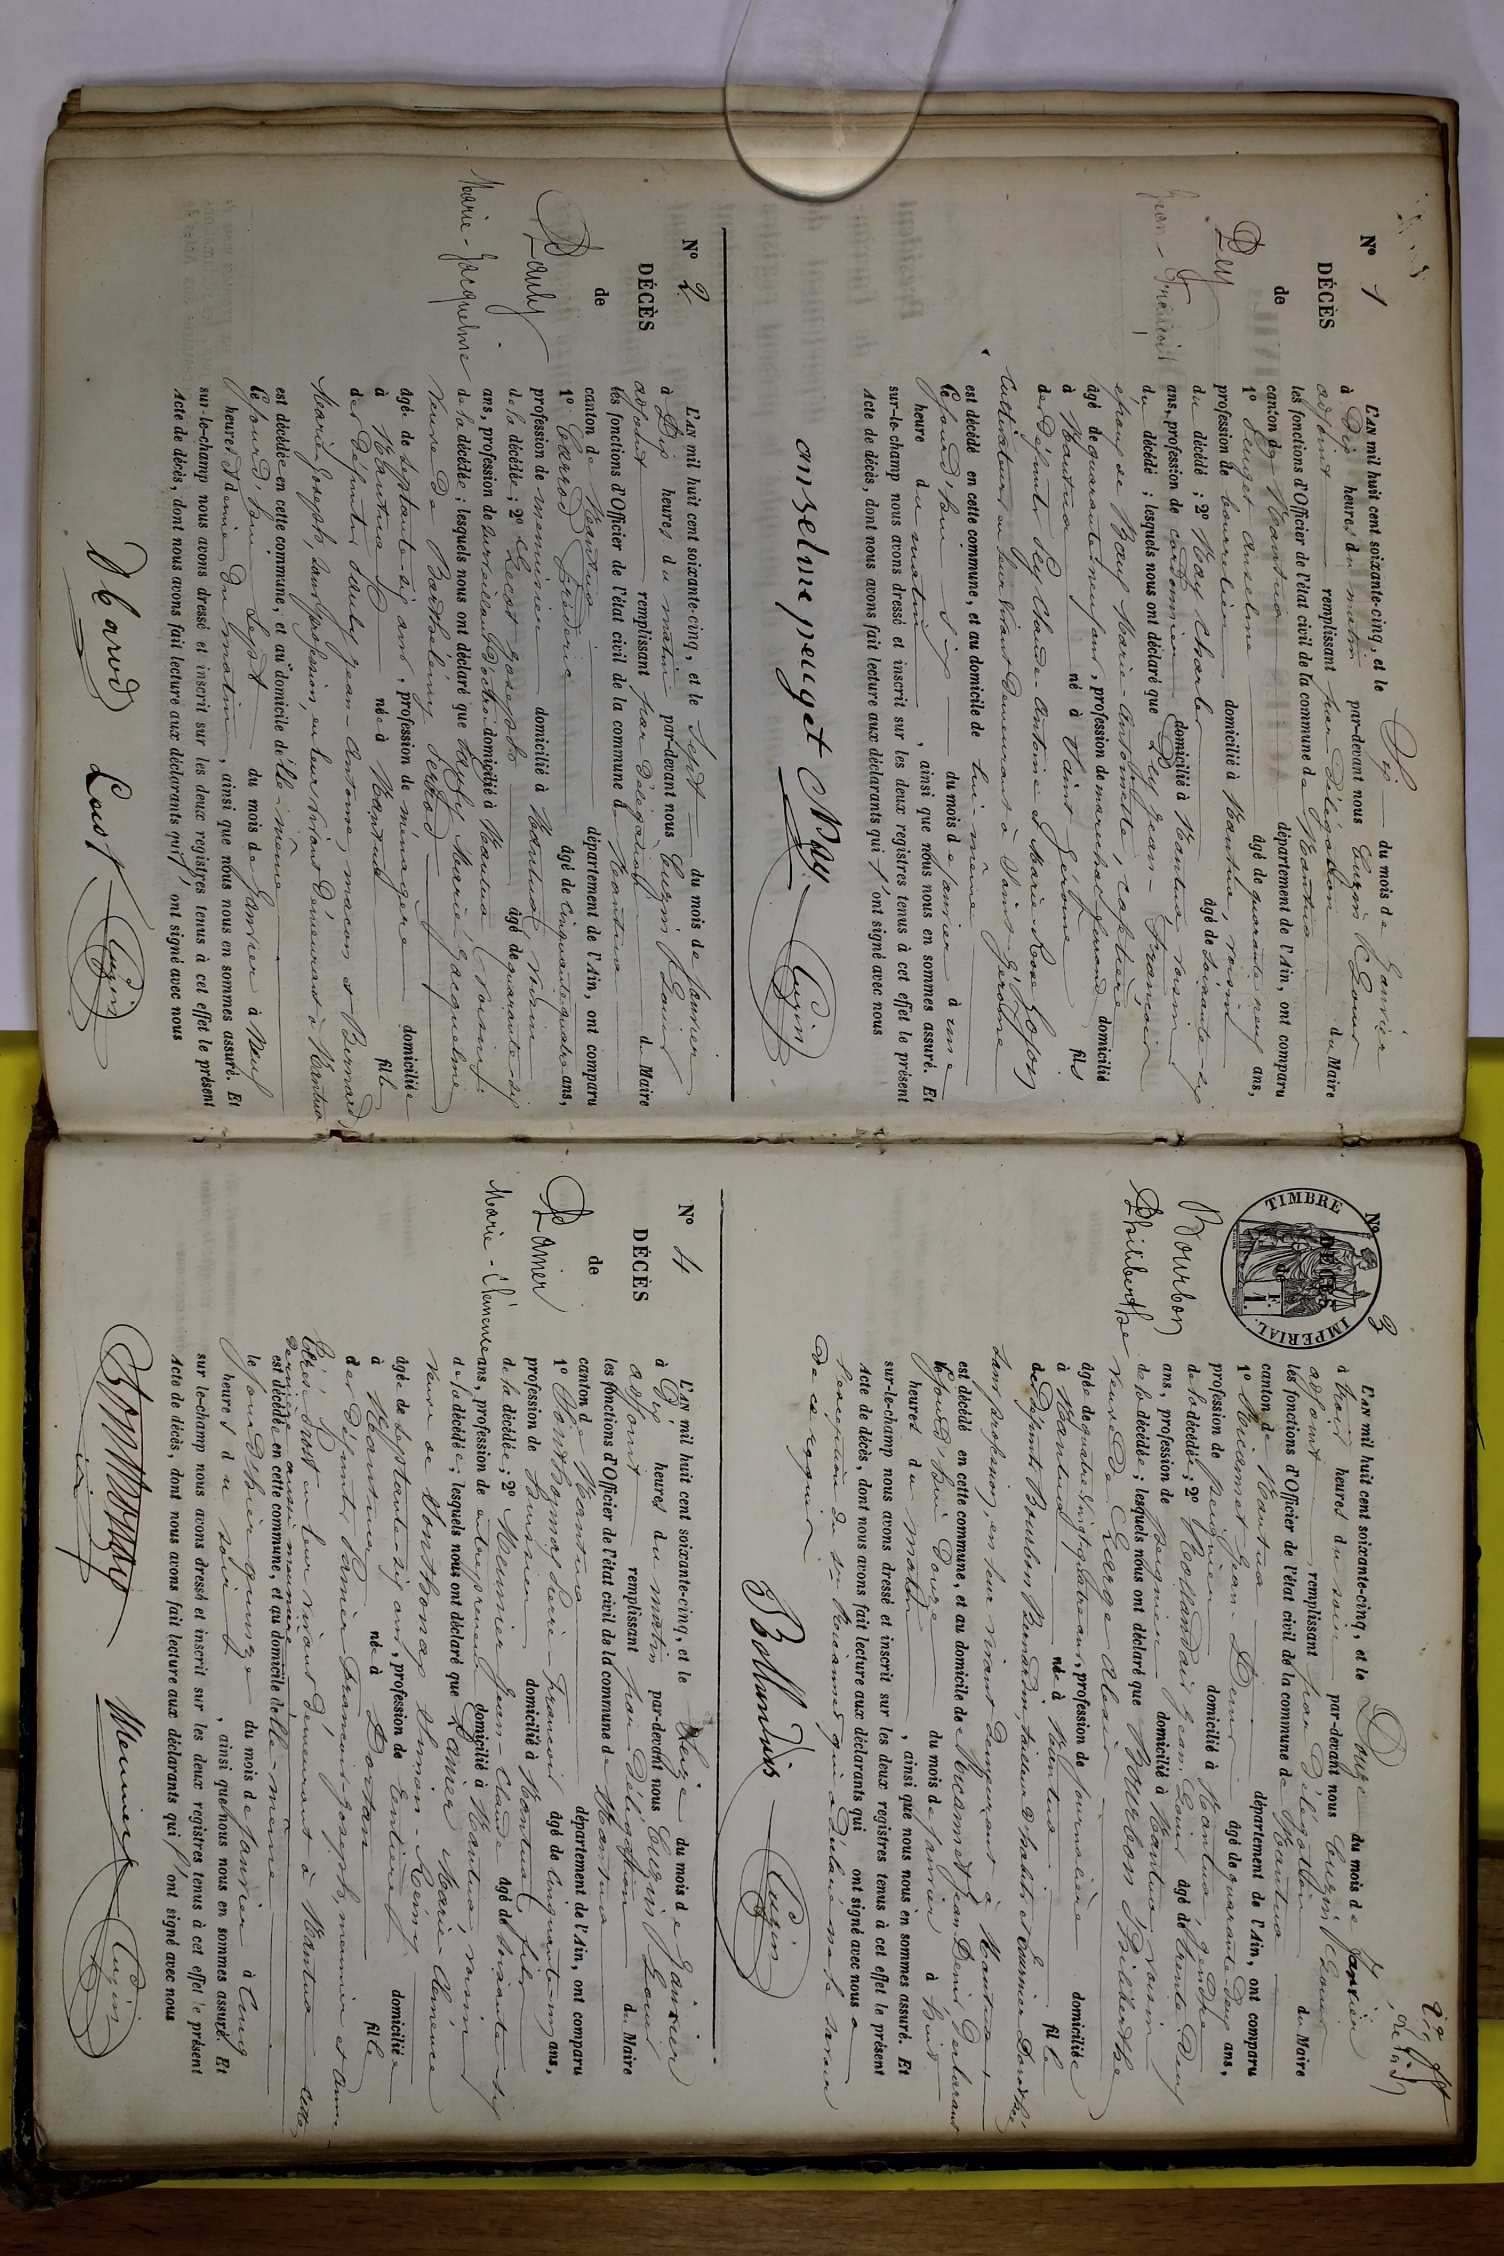 N° 1
DÉCÈS
de
Ley
Jean-François
L'AN mil huit cent soixante-cinq, et le Six du mois de Janvier
à Dix heures du matin par-devant nous Cuzin Louis
adjoint remplissant par Délégation du Maire
les fonctions d'Officier de l'état civil de la commune de Nantua
canton de Nantua département de l'Ain, ont comparu
1° Peuget anselme âgé de quarante neuf ans,
profession de bourrelier domicilié à Nantua, voisin
du décédé ; 2° Nay Charles âgé de soixante six
ans, profession de cordonnier domicilié à Nantua voisin
du décédé ; lesquels nous ont déclaré que Ley Jean-François
époux de Marie-Antoinette,
âgé de quarante neuf ans, profession de marechal ferrand domicilié
à Nantua né à Saint Gérôme fils
des défunts Ley Claude-Antoine et Marie-Rose
Cultivateurs en leur vivant demeurant à Saint-Gérôme
est décédé en cette commune, et au domicile de lui-même
le jourd'hui six du mois de janvier à une
heure du matin, ainsi que nous nous en sommes assuré. Et
sur-le-champ nous avons dressé et inscrit sur les deux registres tenus à cet effet le présent
Acte de décès, dont nous avons fait lecture aux déclarants qui l'ont signé avec nous
anselme peuget Nay Cuzin
N° 2
DÉCÈS
de
Pauly
Marie-Jacqueline
L'AN mil huit cent soixante-cinq, et le sept du mois de Janvier
à Dix heures du matin par-devant nous Cuzin Louis
adjoint remplissant par Délégation du Maire
les fonctions d'Officier de l'état civil de la commune de Nantua
canton de Nantua département de l'Ain, ont comparu
1° Carrod Fréderic âgé de cinquante quatre ans,
profession de menuisier domicilié à Nantua voisin
de la décédée ; 2° Joseph âgé de quarante-six
ans, profession de surveillant d'octroi domicilié à Nantua voisin
de la décédée ; lesquels nous ont déclaré que Pauly Marie Jacqueline
veuve de Barthélemy
âgée de septante-six ans, profession de ménagère domiciliée
à Nantua née à Nantua fille
des défunts Pauly Jean-Antoine, maçon et Bernard,
Marie Joseph, sans profession, en leur vivant demeurant à Nantua
est décédée en cette commune, et au domicile d'elle-même
le jourd'hui sept du mois de Janvier à Neuf
heures et demie du matin, ainsi que nous nous en sommes assuré. Et
sur-le-champ nous avons dressé et inscrit sur les deux registres tenus à cet effet le présent
Acte de décès, dont nous avons fait lecture aux déclarants qui l'ont signé avec nous
Cuzin
N° 3
TIMBRE IMPÉRIAL
DÉCÈS
de
Bourbon
Philiberthe
L'AN mil huit cent soixante-cinq, et le Douze du mois de Janvier
à trois heures du soir par-devant nous Cuzin Louis
adjoint remplissant par Délégation du Maire
les fonctions d'Officier de l'état civil de la commune de Nantua
canton de Nantua département de l'Ain, ont comparu
1° Jean-Denis âgé de quarante deux ans,
profession de peignier domicilié à Nantua, gendre
de la décédée ; 2° Bollandris Jean Louis âgé de trente deux
ans, profession de peignier domicilié à Nantua voisin
de la décédée ; lesquels nous ont déclaré que Bourbon Philiberthe
veuve de
âgée de quatre vingt quatre ans, profession de journalière domiciliée
à Nantua née à Nantua fille
de défunts Bourbon Bernardin, tailleur d'habits et
sans profession, en leur vivant demeurant à Nantua
est décédé en cette commune, et au domicile de Jean Denis Declarant
le jourd'hui Douze du mois de janvier à huit
heures du matin, ainsi que nous nous en sommes assuré. Et
sur-le-champ nous avons dressé et inscrit sur les deux registres tenus à cet effet le présent
Acte de décès, dont nous avons fait lecture aux déclarants qui ont signé avec nous a
l'exception du qui a déclaré ne le savoir
de ce requis
Bollandris Cuzin
N° 4
DÉCÈS
de
Panier
Marie-Clémence
L'AN mil huit cent soixante-cinq, et le Seize du mois de Janvier
à Dix heures du matin par-devant nous Cuzin Louis
adjoint remplissant par Délégation du Maire
les fonctions d'Officier de l'état civil de la commune de Nantua
canton de Nantua département de l'Ain, ont comparu
1° Sonthonnax Pierre-François âgé de cinquante-un ans,
profession de huissier domicilié à Nantua, fils
de la décédée ; 2° Meunier Jean-Claude âgé de soixante-six
ans, profession de entrepreneur domicilié à Nantua, voisin
de la décédée ; lesquels nous ont déclaré que Panier Marie-Clémence
veuve de Sonthonax Simon-Rémy
âgée de septante-six ans, profession de Rentière domiciliée
à Nantua née à Dortan fille
des défunts Panier François-Joseph, meunier et
en leur vivant demeurant à
est décédé en cette commune, et au domicile d'elle-même
le jour d'hier quinze du mois de janvier à cinq
heures du soir, ainsi que nous nous en sommes assuré. Et
sur-le-champ nous avons dressé et inscrit sur les deux registres tenus à cet effet le présent
Acte de décès, dont nous avons fait lecture aux déclarants qui l'ont signé avec nous
Meunier Cuzin